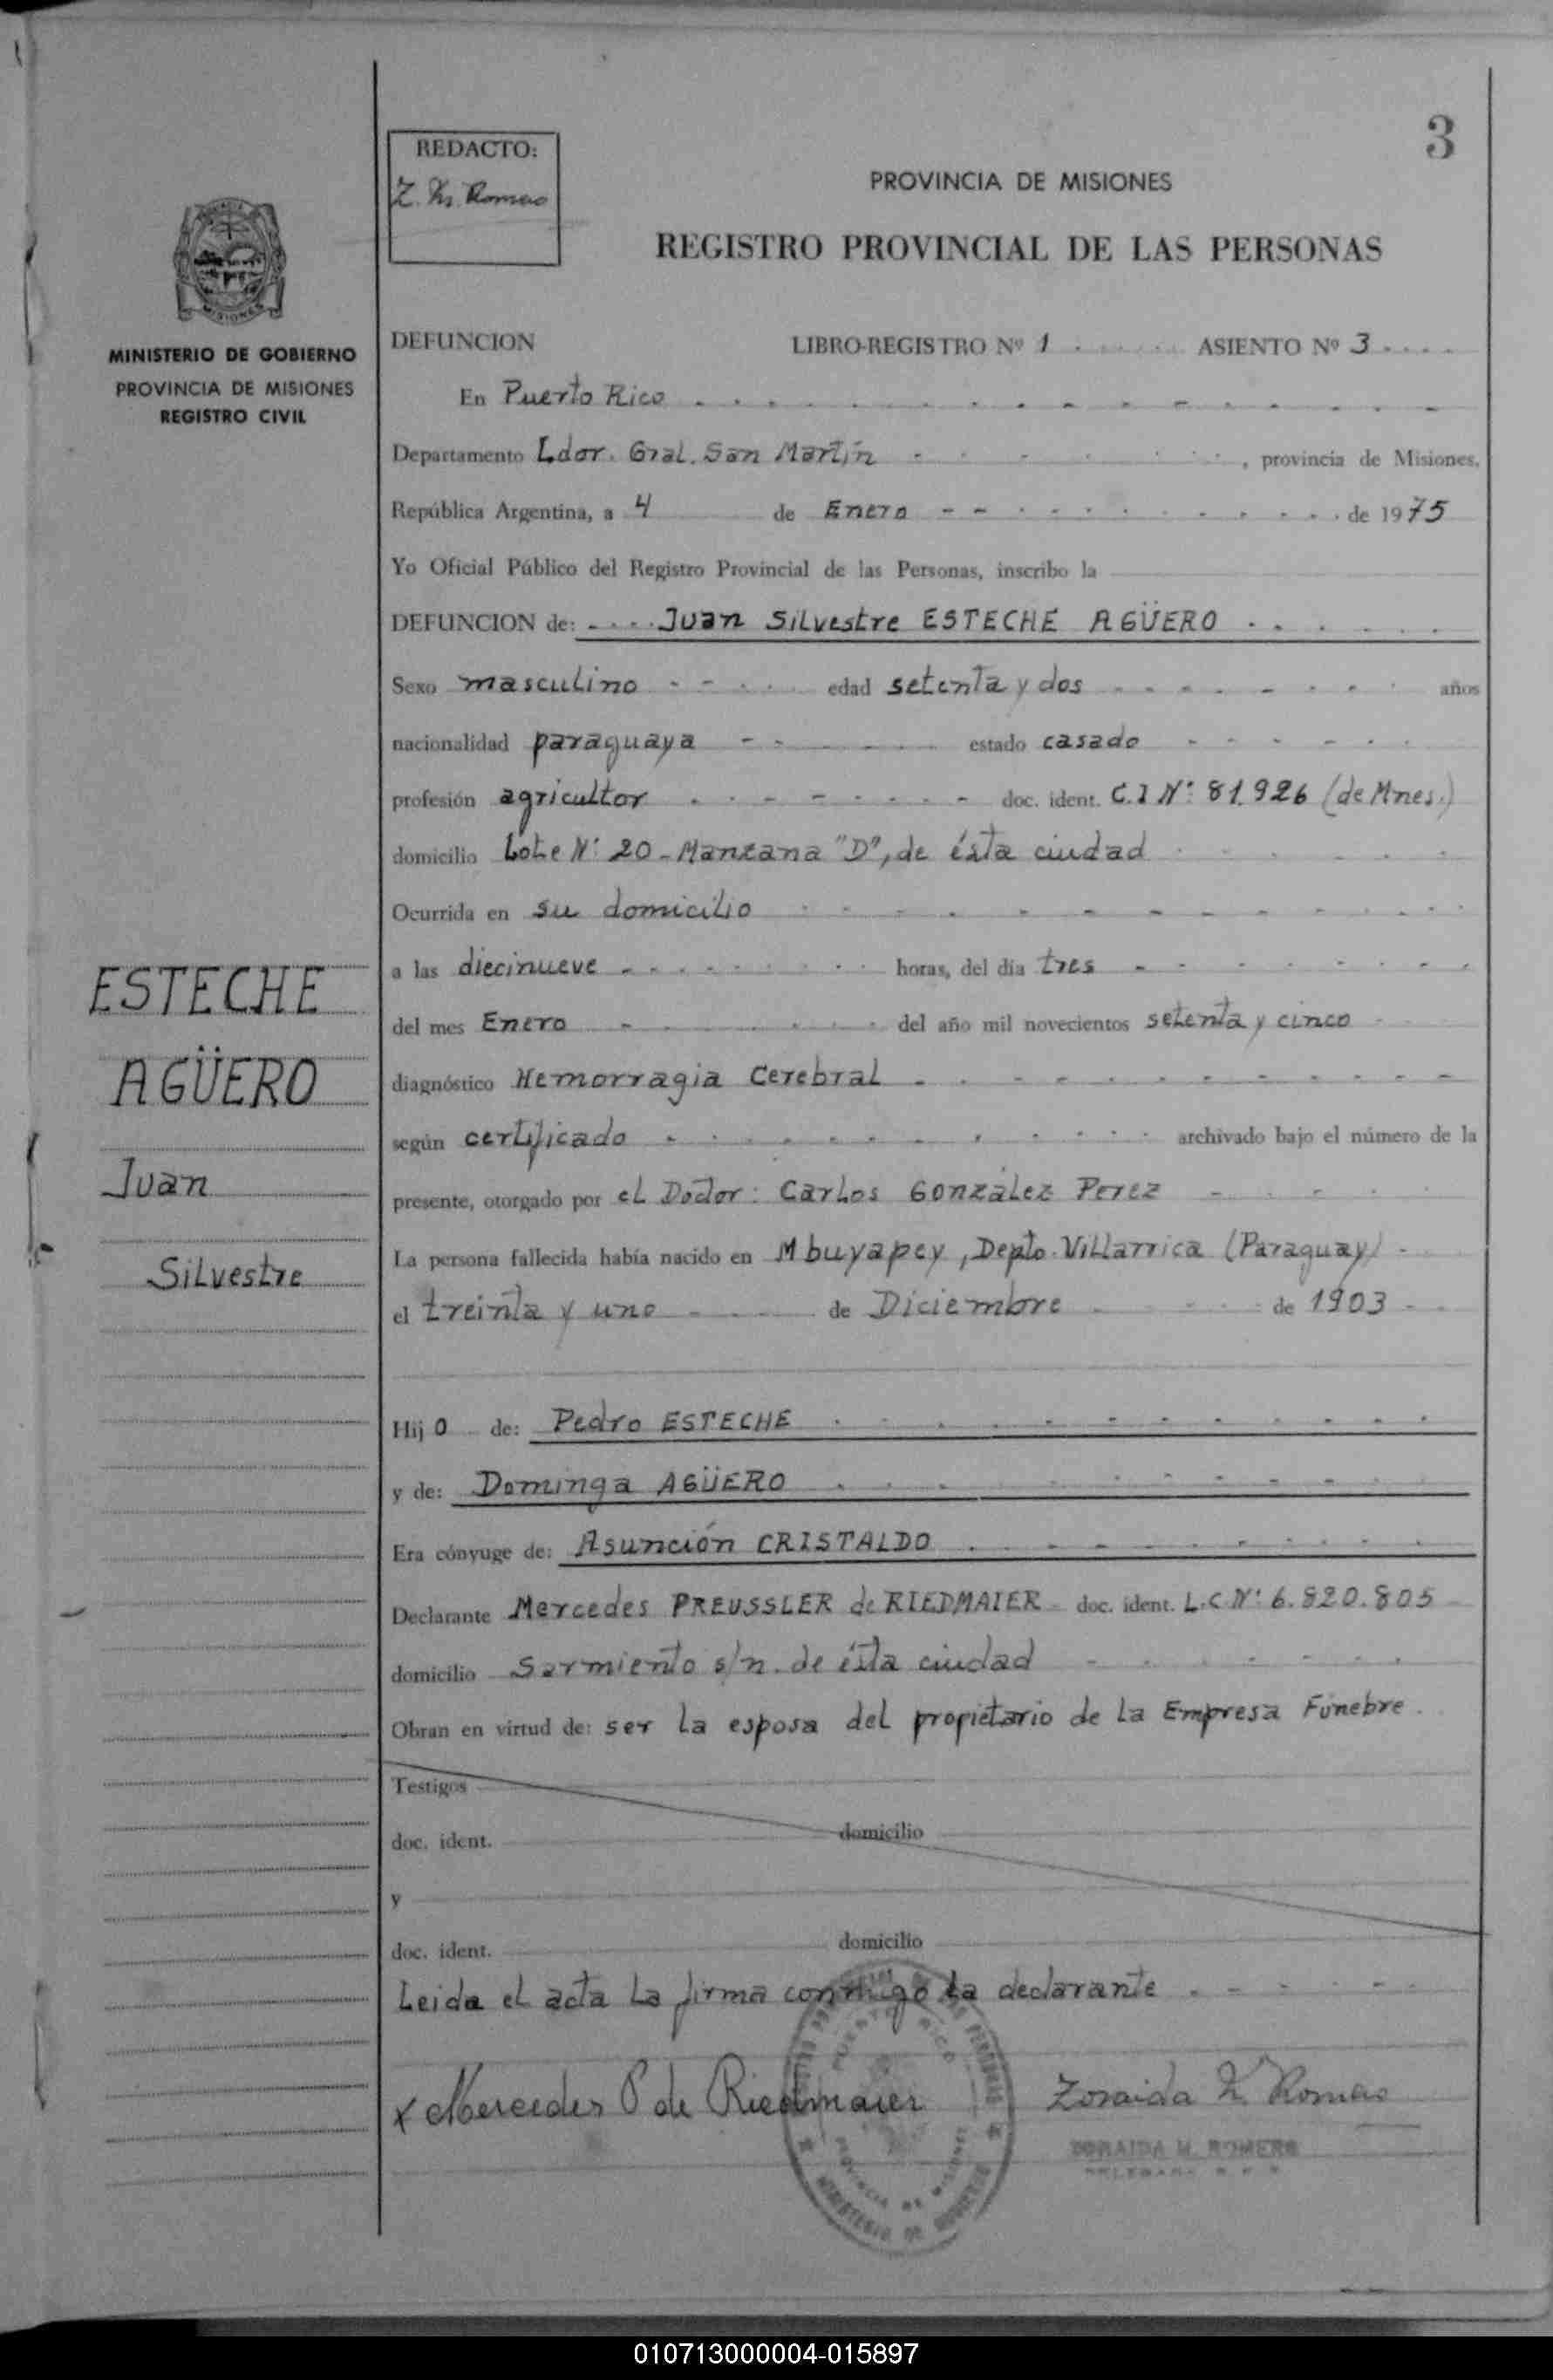 3
REDACTO:
Z. M. Romero
PROVINCIA DE MISIONES
REGISTRO PROVINCIAL DE LAS PERSONAS
MINISTERIO DE GOBIERNO
PROVINCIA DE MISIONES
REGISTRO CIVIL
DEFUNCION LIBRO-REGISTRO Nº 1 ASIENTO Nº 3
En Puerto Rico
Departamento Ldor. Gral. San Martín, provincia de Misiones.
República Argentina, a 4 de Enero de 1975
Yo Oficial Público del Registro Provincial de las Personas, inscribo la
DEFUNCION de: Juan Silvestre ESTECHE AGÜERO
Sexo masculino edad setenta y dos años
nacionalidad paraguaya estado casado
profesión agricultor doc. ident. C.I Nº 81.926 (de Mnes.)
domicilio Lote Nº 20 - Manzana "D", de ésta ciudad
Ocurrida en su domicilio
a las diecinueve horas, del día tres
del mes Enero del año mil novecientos setenta y cinco
diagnóstico Hemorragia Cerebral
según certificado archivado bajo el número de la
presente, otorgado por el Doctor: Carlos González Perez
La persona fallecida había nacido en Mbuyapey, Depto. Villarrica (Paraguay)
el treinta y uno de Diciembre de 1903
Hijo de: Pedro ESTECHE
y de: Dominga AGÜERO
Era cónyuge de: Asunción CRISTALDO
Declarante Mercedes PREUSSLER de RIEDMAIER doc. ident. L.C Nº 6.820.805
domicilio Sarmiento s/n. de ésta ciudad
Obran en virtud de: ser la esposa del propietario de la Empresa Fúnebre.
Testigos
doc. ident. domicilio
y
doc. ident. domicilio
Leida el acta la firma conmigo la declarante
x Mercedes P de Riedmaier Zoraida M Romero
ZORAIDA M. ROMERO
PUERTO RICO
PROVINCIA DE MISIONES
MINISTERIO DE GOBIERNO
ESTECHE
AGÜERO
Juan
Silvestre
010713000004-015897